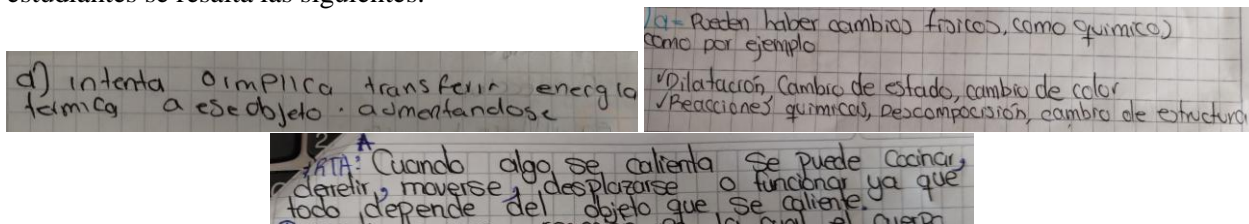 estudiantes se resalta las siguientes:
a) intenta o implica transferir energia
termica a ese objeto. aumentandose
a- Pueden haber cambios fisicos, como quimicos
como por ejemplo
✓Dilatación, Cambio de estado, cambio de color
✓Reacciones quimicas, Descomposición, cambio de estructura
A
RTA: Cuando algo se calienta se puede cocinar,
derretir, moverse, desplazarse o funcionar ya que
todo depende del objeto que se caliente.
la cual el cuerpo